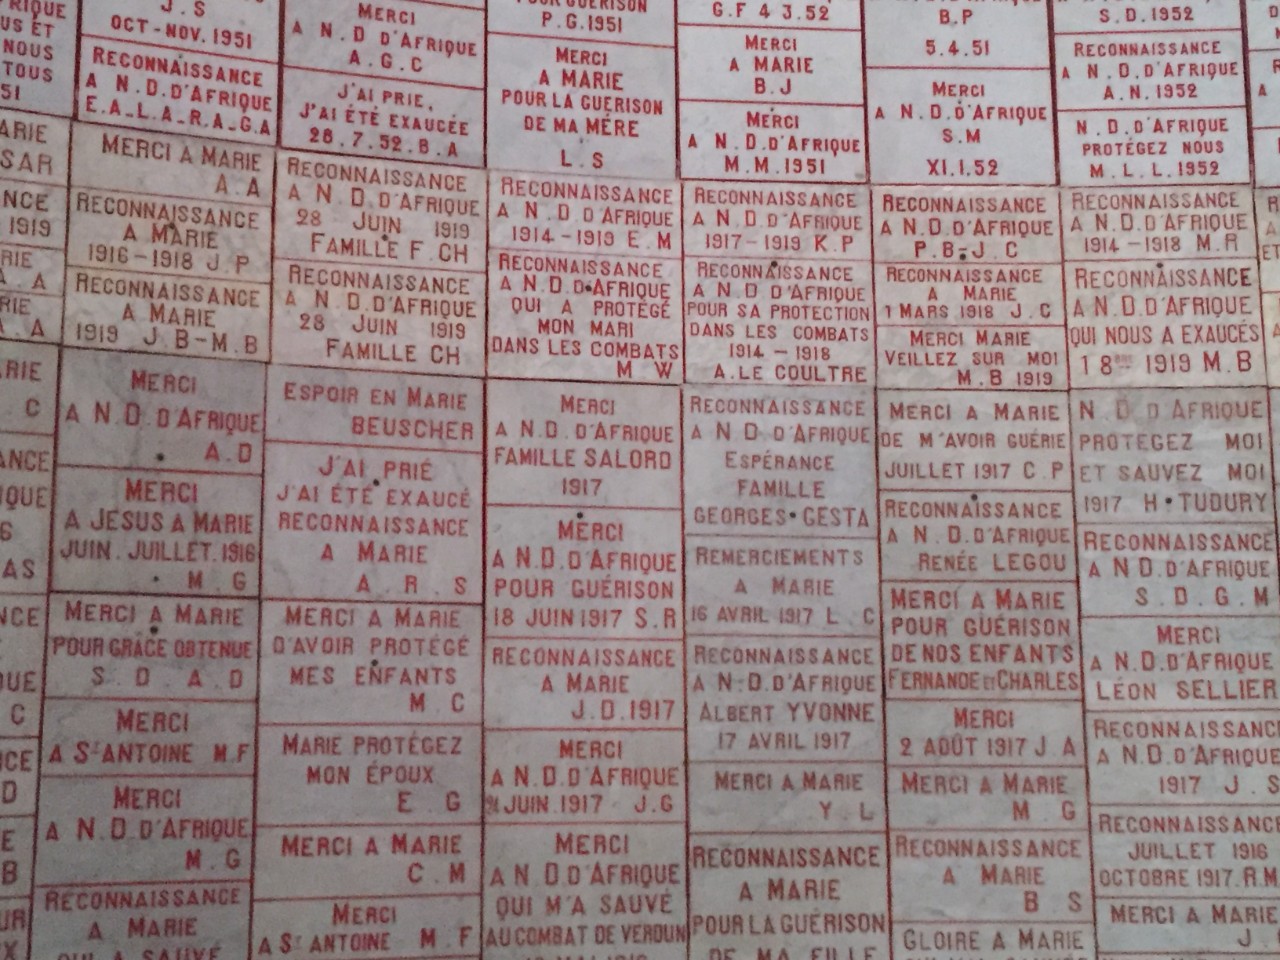 RIQUE
US ET
NOUS
TOUS
51
ARIE
SAR
NCE
1919
RIE
A . A
RIE
A . A
ARIE
C
ANCE
IQUE
6
AS
NCE
QUE
C
CE
D
E
B
UR
X
J.S
OCT-NOV.1951
RECONNAISSANCE
A N.D.D'AFRIQUE
E.A_L.A_R.A_G.A
MERCI A MARIE
A.A
RECONNAISSANCE
A MARIE
1916-1918 J.P
RECONNAISSANCE
A MARIE
1919 J.B-M.B
MERCI
A N.D.D'AFRIQUE
A.D
MERCI
A JESUS A MARIE
JUIN.JUILLET.1916
M.G
MERCI A MARIE
POUR GRÂCE OBTENUE
S.D.A.D
MERCI
A ST ANTOINE M.F
MERCI
A N.D.D'AFRIQUE
M.G
RECONNAISSANCE
A MARIE
QUI A SAUVÉ
MERCI
A N.D D'AFRIQUE
A.G.C
J'AI PRIE,
J'AI ÉTÉ EXAUCÉE
26.7.52.B.A
RECONNAISSANCE
A N.D.D'AFRIQUE
28 JUIN 1919
FAMILLE F.CH
RECONNAISSANCE
A N.D.D'AFRIQUE
28 JUIN 1919
FAMILLE CH
ESPOIR EN MARIE
BEUSCHER
J'AI PRIÉ
J'AI ÉTÉ EXAUCÉ
RECONNAISSANCE
A MARIE
A.R.S
MERCI A MARIE
D'AVOIR PROTÉGÉ
MES ENFANTS
M C
MARIE PROTÉGEZ
MON ÉPOUX
E G
MERCI A MARIE
C.M
MERCI
A ST ANTOINE M.F
POUR GUÉRISON
P.G.1951
MERCI
A MARIE
POUR LA GUÉRISON
DE MA MÉRE
L.S
RECONNAISSANCE
A N.D.D'AFRIQUE
1914-1919 E.M
RECONNAISSANCE
A N.D.D'AFRIQUE
QUI A PROTÉGÉ
MON MARI
DANS LES COMBATS
M W
MERCI
A N.D.D'AFRIQUE
FAMILLE SALORD
1917
MERCI
A N.D.D'AFRIQUE
POUR GUÉRISON
18 JUIN 1917 S.R
RECONNAISSANCE
A MARIE
J.D.1917
MERCI
A N.D.D'AFRIQUE
JUIN.1917 J.G
MERCI
A N.D.D'AFRIQUE
QUI M'A SAUVÉ
AU COMBAT DE VERDUN
G.F 4 3.52
MERCI
A MARIE
B.J
MERCI
A N.D.D'AFRIQUE
M.M.1951
RECONNAISSANCE
A N.D.D'AFRIQUE
1917-1919 K.P
RECONNAISSANCE
A N.D.D'AFRIQUE
POUR SA PROTECTION
DANS LES COMBATS
1914 - 1918
A.LE COULTRE
RECONNAISSANCE
A N D D'AFRIQUE
ESPÉRANCE
FAMILLE
GEORGES GESTA
REMERCIEMENTS
A MARIE
16 AVRIL 1917 L.C
RECONNAISSANCE
A N.D.D'AFRIQUE
ALBERT YVONNE
17 AVRIL 1917
MERCI A MARIE
Y.L
RECONNAISSANCE
A MARIE
POUR LA GUÉRISON
DE MA FILLE
B.P
5.4.51
MERCI
A N.D.D'AFRIQUE
S.M
XI.1.52
RECONNAISSANCE
A N.D.D'AFRIQUE
P.B-J.C
RECONNAISSANCE
A MARIE
1 MARS 1918 J.C
MERCI MARIE
VEILLEZ SUR MOI
M.B 1919
MERCI A MARIE
DE M'AVOIR GUÉRIE
JUILLET 1917 C.P
RECONNAISSANCE
A N.D.D'AFRIQUE
RENÉE LEGOU
MERCI A MARIE
POUR GUÉRISON
DE NOS ENFANTS
FERNANDE ET CHARLES
MERCI
2 AOÛT 1917 J.A
MERCI A MARIE
M G
RECONNAISSANCE
A MARIE
B S
GLOIRE A MARIE
S.D.1952
RECONNAISSANCE
A N.D.D'AFRIQUE
A.N.1952
N.D.D'AFRIQUE
PROTÉGEZ NOUS
M.L.L.1952
RECONNAISSANCE
A N.D.D'AFRIQUE
1914-1918 M.R
RECONNAISSANCE
A N.D.D'AFRIQUE
QUI NOUS A EXAUCÉS
1 8BRE 1919 M.B
N.D D'AFRIQUE
PROTEGEZ MOI
ET SAUVEZ MOI
1917 H.TUDURY
RECONNAISSANCE
A N D.D'AFRIQUE
S.D.G.M
MERCI
A N.D.D'AFRIQUE
LÉON SELLIER
RECONNAISSANC
A N.D.D'AFRIQUE
1917 J.S
RECONNAISSANC
JUILLET 1916
OCTOBRE 1917.R.M
MERCI A MARIE
J.